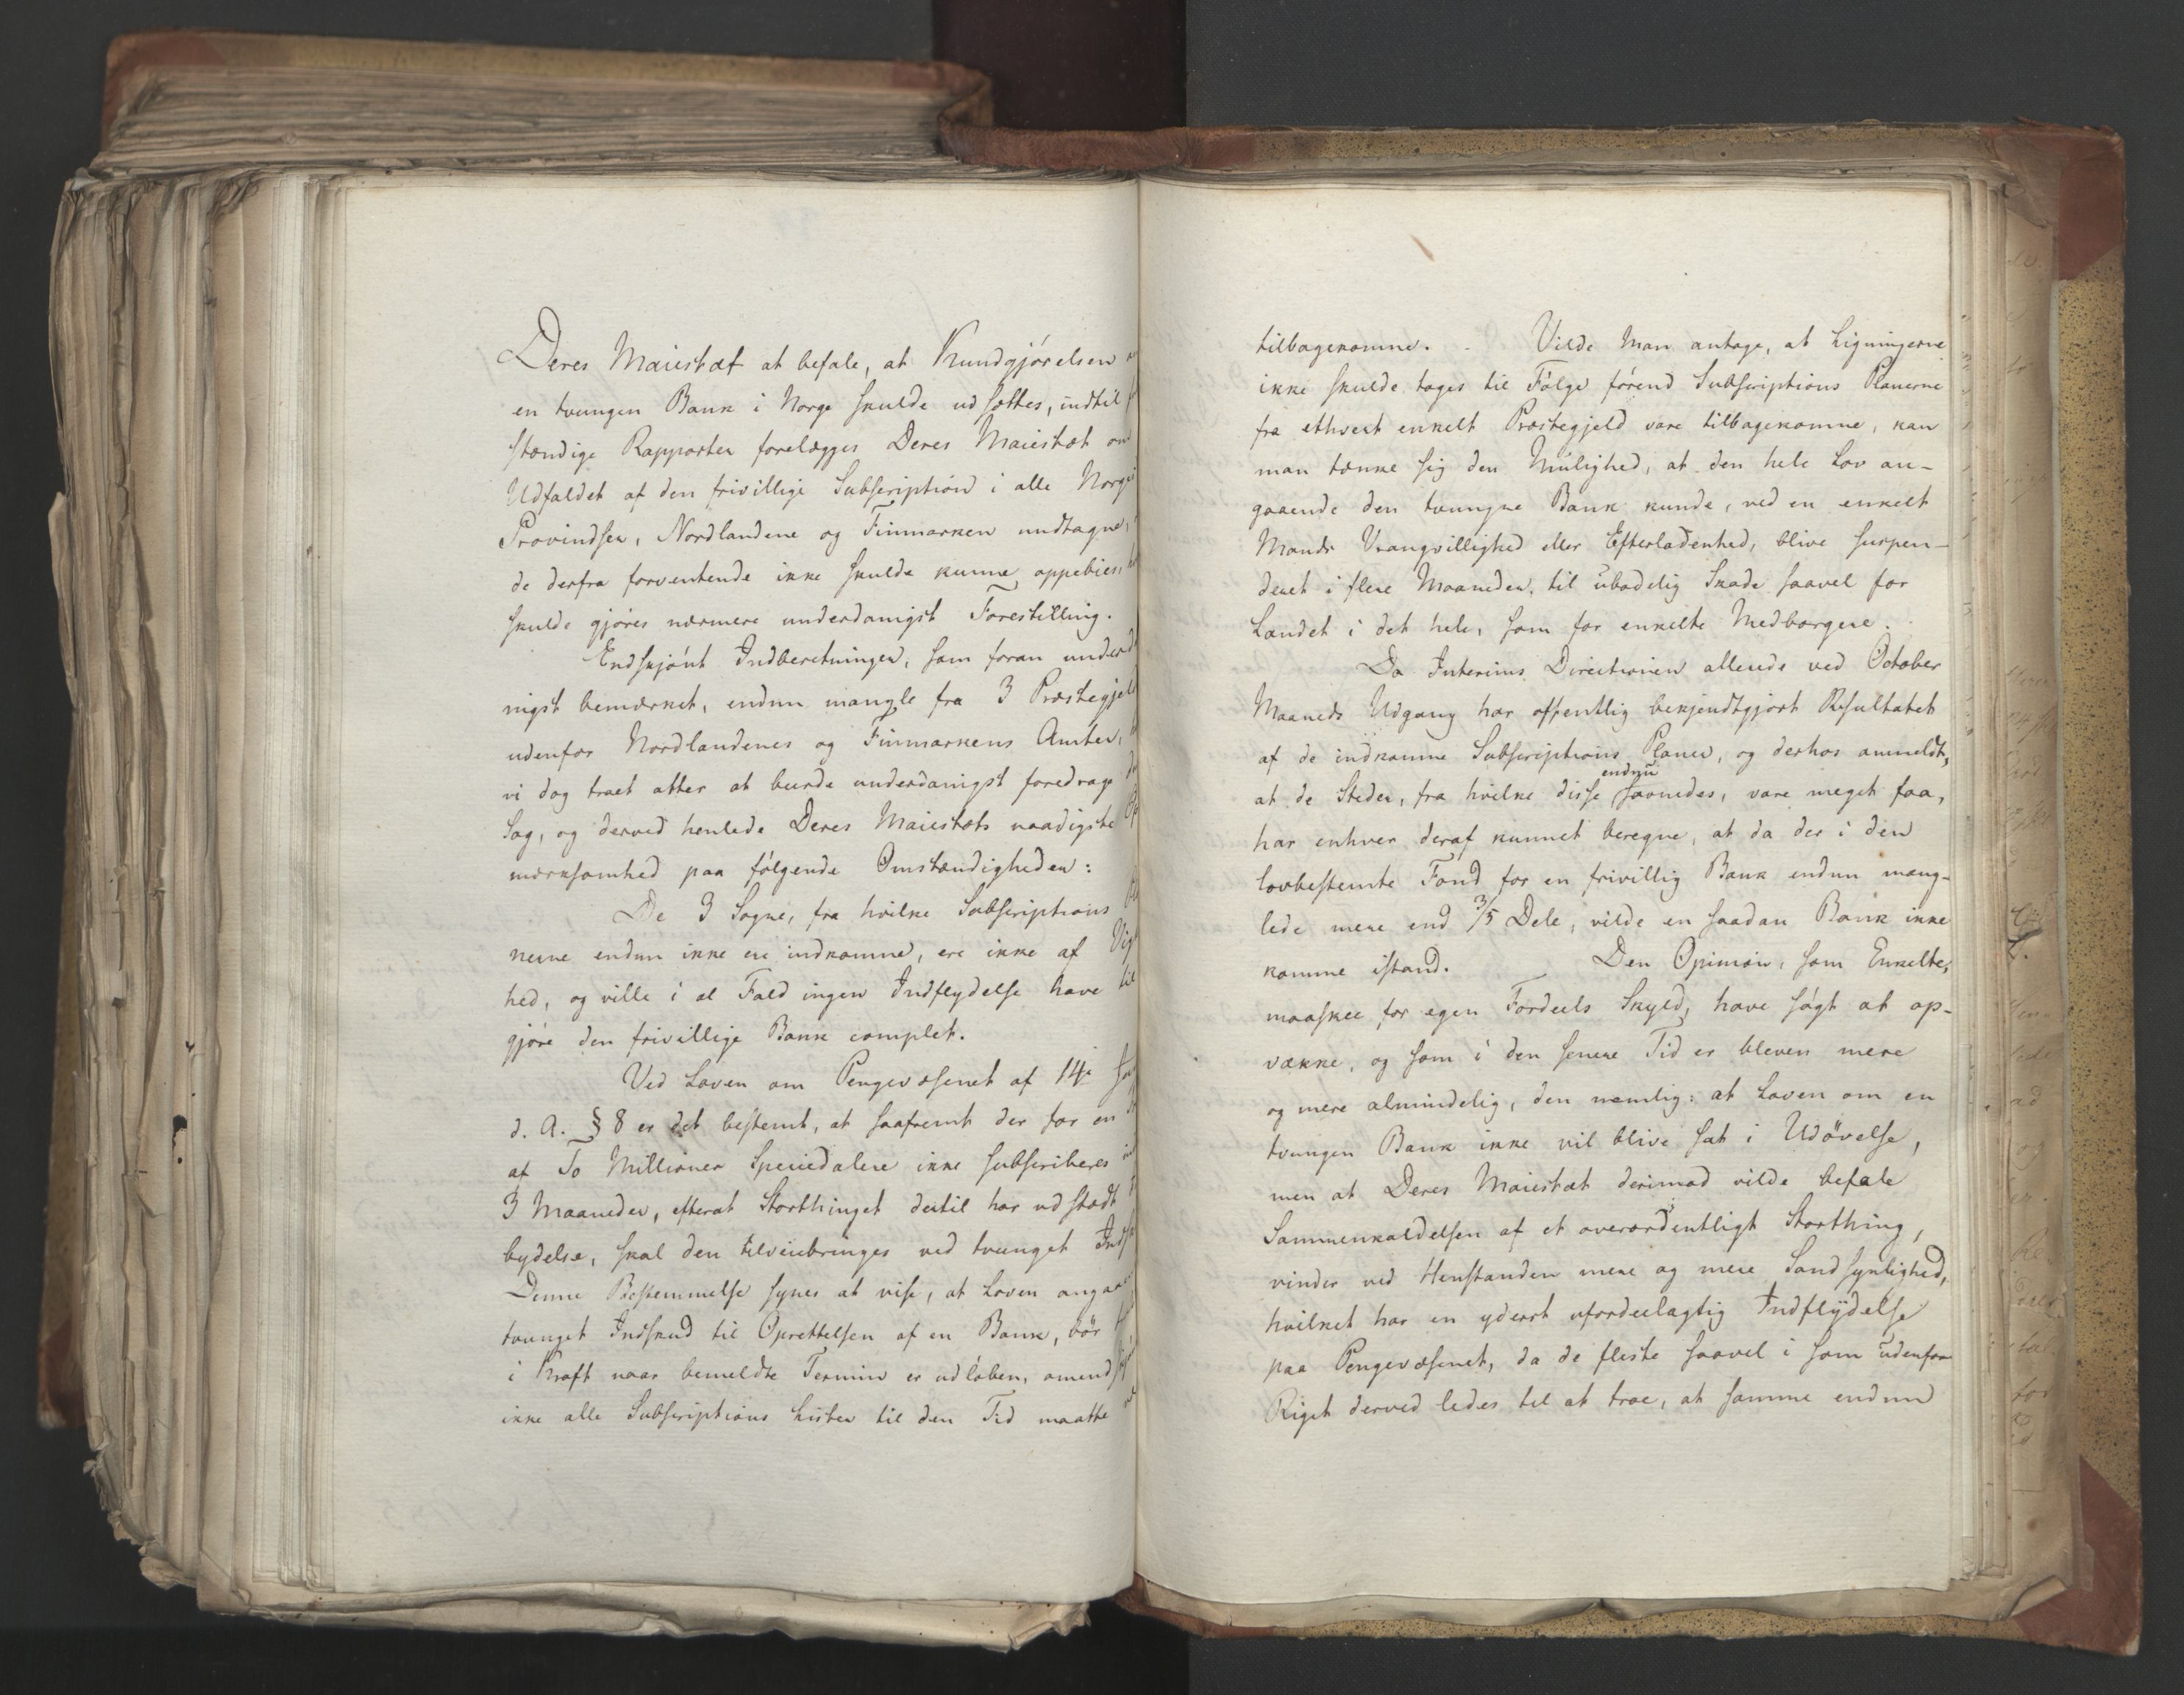 Deres Maiestæt at befale, at Kundgjørelsen
en tvungen Bank i Norge skulde udsættes, indtil
stændige Rapporter forelægges Deres Maiestæt om
Udfaldet af den frivillige Subscription i alle Norges
Provindser, Nordlandene og Finmarken undtagne,
de derfra forventende ikke skulde kunne oppebies,
skulde gjøres nærmere underdanigst Forestilling.
Endskjønt Indberetninger, som foran underd
nigst bemærket, endnu mangle fra 3 Præstegjeld
udenfor Nordlandenes og Finmarkens Amter,
vi dog troet atter at burde underdanigst foredrage
Sag, og derved henlede Deres Maiestæts naadigste Op
mærksomhed paa følgende Omstændigheder:
De 3 Sogne, fra hvilke Subscriptions
nerne endnu ikke ere indkomne, ere ikke af Vig
hed, og ville i al Fald ingen Indflydelse have til
gjøre den frivillige Bank complet.
Ved Loven om Pengevæsenet af 14de
d. A. § 8 er det bestemt, at saafremt der for en
af To Millioner Speciedalere ikke subscriberes
3 Maaneder, efterat Storthinget dertil har udstædt
bydelse, skal den tilveiebringes ved tvunget Inds
Denne Bestemmelse synes at vise, at Loven angaaen
tvunget Indskud til Oprettelsen af en Bank, bör
i Kraft naar bemeldte Termin er udløben, omendskjön
ikke alle Subscriptions Lister til den Tid maatte
tilbagekomme. Vilde Man antage, at Ligningerne
ikke skulde tages til Følge førend Subscriptions Planerne
fra ethvert enkelt Præstegjeld vare tilbagekomne, kan
man tænke sig den Mulighed, at den hele Lov an-
gaaende den tvungne Bank kunde, ved en enkelt
Mands Vrangvillighed eller Efterladenhed, blive suspen-
deret i flere Maaneder, til ubodelig Skade saavel for
Landet i det hele, som for enkelte Medborgere.
Da Interims Directionen allerede ved October
Maaneds Udgang har offentlig bekjendtgjort Resultatet
af de indkomne Subscriptions Planer, og derhos anmeldt,
endnu
at de Steder, fra hvilke disse savnedes, vare meget faa,
har enhver deraf kunnet beregne, at da der i den
lovbestemte Fond for en frivillig Bank endnu mang-
lede mere end 3/5 Dele, vilde en saadan Bank ikke
komme istand. Den Opinion, som Enkelte,
maaskee for egen Fordeels Skyld, have søgt at op-
vække, og som i den senere Tid er bleven mere
og mere almindelig, den nemlig: at Loven om en
tvungen Bank ikke vil blive sat i Udøvelse,
men at Deres Maiestæt derimod vilde befale
Sammenkaldelsen af et overordentligt Storthing,
vinder ved Henstanden mere og mere Sandsynlighed,
hvilket har en yderst ufordeelagtig Indflydelse
paa Pengevæsenet, da de fleste saavel i som udenfor
Riget derved ledes til at troe, at samme endnu